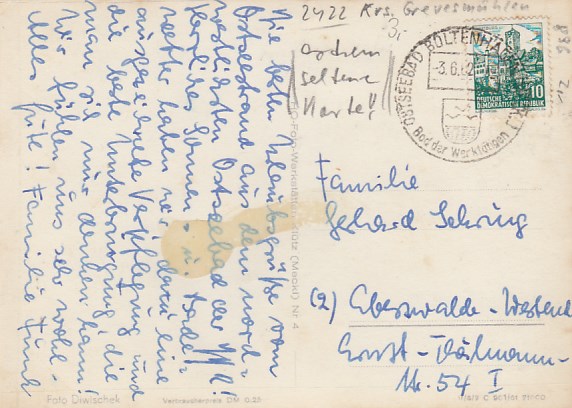 2422 Krs. Grevesmühlen
OSTSEEBAD BOLTENHAGEN
-3.6.62
Bad der Werktätigen
DEUTSCHE
DEMOKRATISCHE REPUBLIK
10
seltene
Karte!
Die besten Urlaubsgrüße vom
Ostseestrand aus dem nord-
westlichsten Ostseebad der DDR!
Herrliches Sonnen- u. Bade-
wetter haben wir, dazu eine
ausgezeichnete Verpflegung und
die beste Unterbringung, die
man sich nur denken kann!
Wir fühlen uns sehr wohl-
Alles Gute! Familie Funk
Familie
Gerhard Sehring
(2) Eberswalde-Westend
Ernst-Thälmann-
Nr. 54 I
(Meckl) Nr 4
Foto Diwischek
Verbraucherpreis DM 0.25